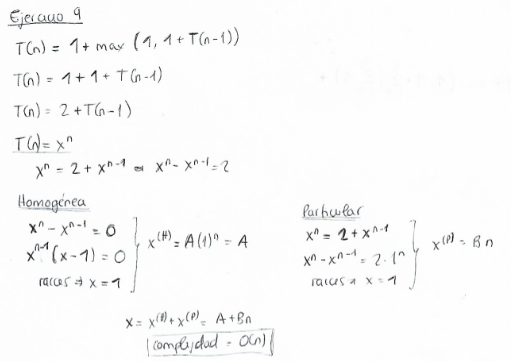 Ejercicio 9
T(n) = 1 + max (1, 1 + T(n-1))
T(n) = 1 + 1 + T(n-1)
T(n) = 2 + T(n-1)
T(n) = xⁿ
xⁿ = 2 + xⁿ⁻¹ = xⁿ - xⁿ⁻¹ = 2
Homogénea
xⁿ - xⁿ⁻¹ = 0
xⁿ⁻¹ (x - 1) = 0
raíces → x = 1
x⁽ᴴ⁾ = A(1)ⁿ = A
Particular
xⁿ = 2 + xⁿ⁻¹
xⁿ - xⁿ⁻¹ = 2 · 1ⁿ
raíces → x = 1
x⁽ᴾ⁾ = Bn
x = x⁽ᴴ⁾ + x⁽ᴾ⁾ = A + Bn
complejidad = O(n)